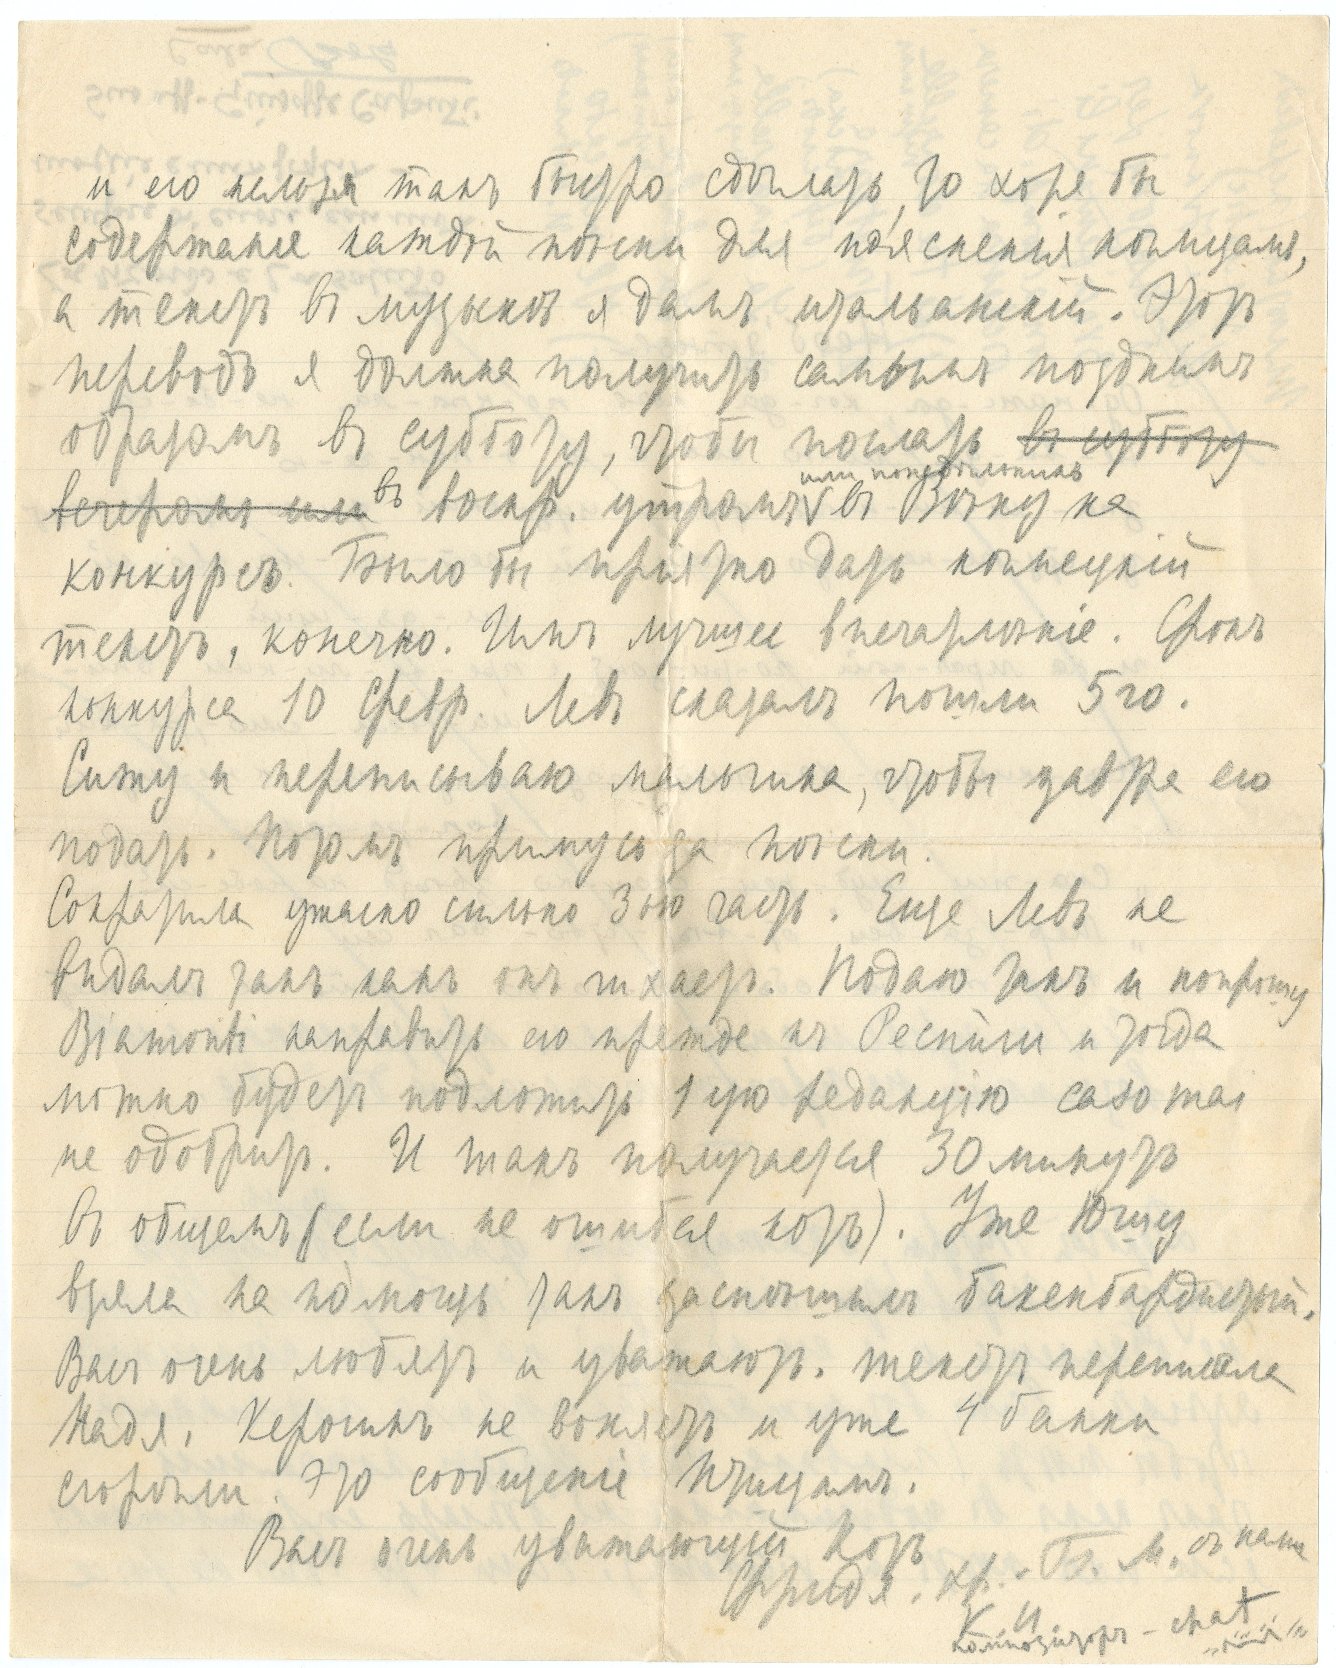 и его нельзя такъ быстро сдѣлать, то хотя бы
содержаніе каждой пѣсни для поясненія нѣмцамъ,
а текстъ въ музыкѣ я дамъ итальанскій. Этотъ
переводъ я должна получить самымъ позднимъ
образомъ въ субботу, чтобы послать въ субботу
или понедѣльникъ
вечеромъ или въ воскр. утромъ въ Вѣну на
конкурсъ. Было бы пріятно дать нѣмецкій
текстъ, конечно. Имъ лучшее впечатлѣніе. Срокъ
конкурса 10 Февр. Левъ сказалъ пошли 5го.
Сижу и переписываю мальчика, чтобы завтра его
подать. Потомъ примусь за пѣсни.
Сократила ужасно сильно 3ью часть. Еще Левъ не
видалъ такъ какъ онъ Подаю такъ и попрошу
Biamonti направить его прежде къ Респиги и тогда
можно будетъ подложить 1ую редакцію caso mai
не одобритъ. И такъ получается 30 минутъ
въ общемъ (если не ошибся котъ). Уже Юшу
взяла на помощь такъ заспѣшилъ бакенбардистый.
Васъ очень любятъ и уважаютъ. текстъ переписала
Надя. Керосинъ не воняетъ и уже 4 банки
сгорѣли. Это сообщеніе Птицамъ.
Васъ очень уважающій Котъ
Фридя. хр. - Б. М. съ нами
К и
композиторъ - chat